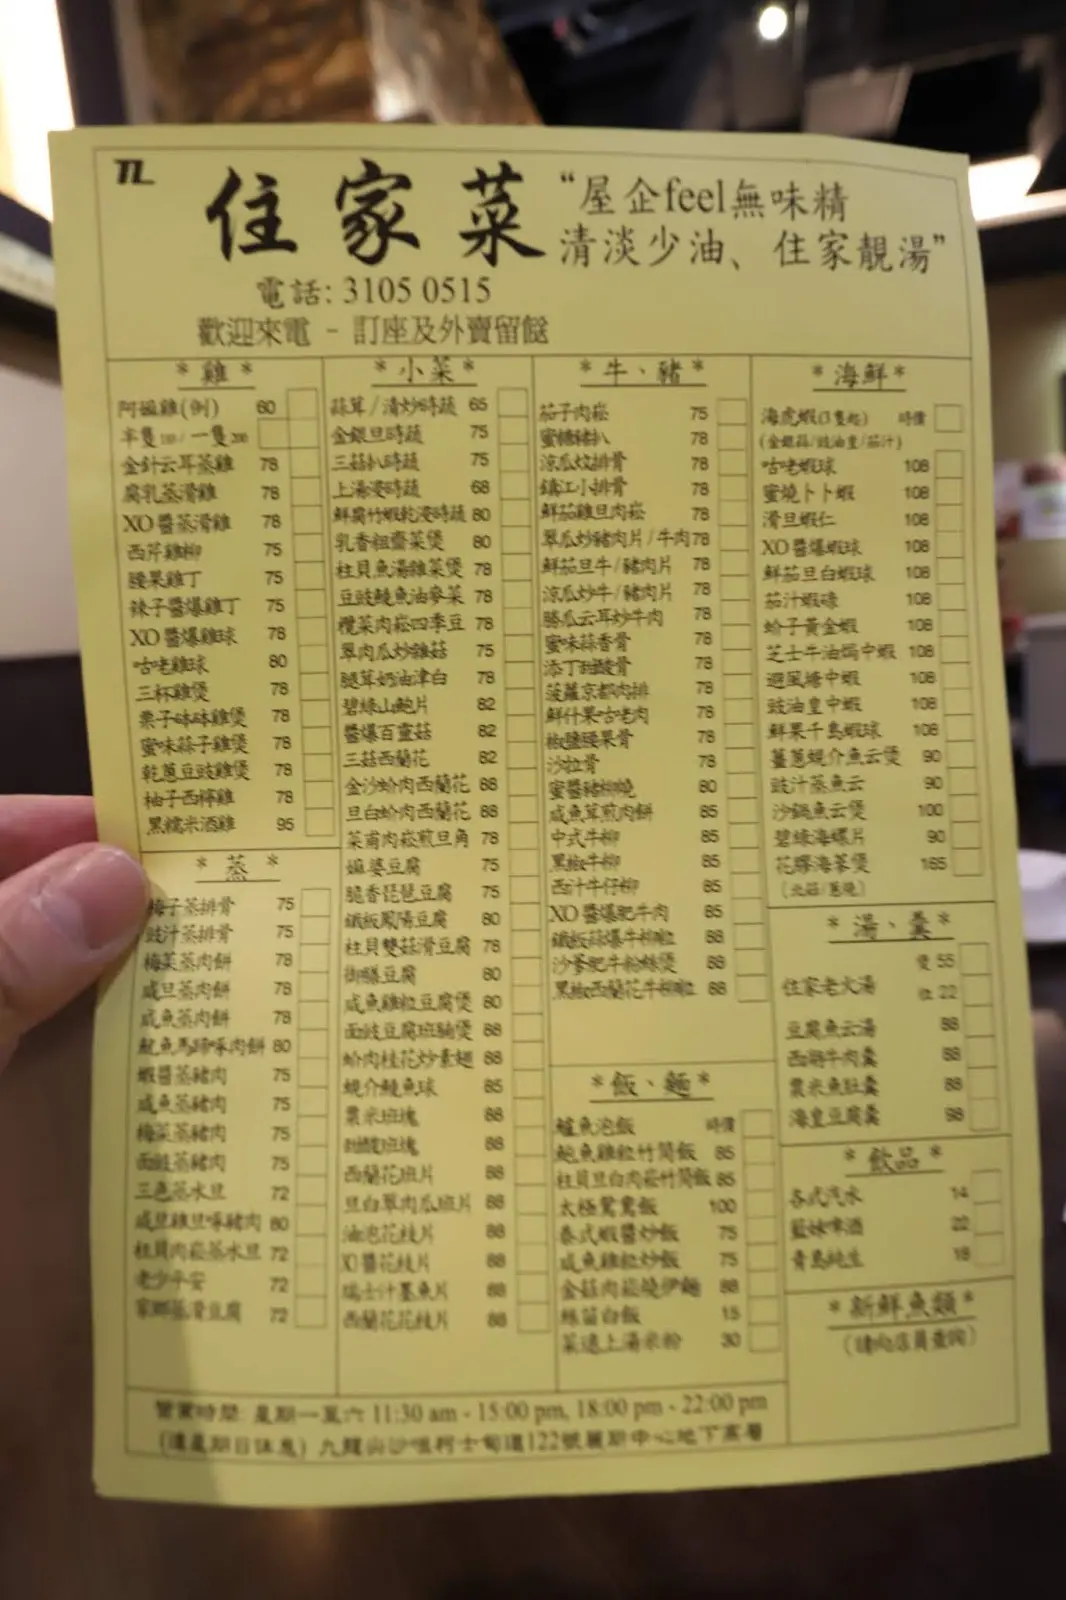 TL
住家菜
“屋企feel無味精
清淡少油、住家靚湯”
電話: 3105 0515
歡迎來電 - 訂座及外賣留餸
* 雞 *
阿磁雞(例) 60
半隻110 / 一隻200
金針云耳蒸雞 78
腐乳蒸滑雞 78
XO醬蒸滑雞 78
西芹雞柳 75
腰果雞丁 75
辣子醬爆雞丁 75
XO醬爆雞球 78
咕咾雞球 80
三杯雞煲 78
栗子砵砵雞煲 78
蜜味蒜子雞煲 78
乾蔥豆豉雞煲 78
柚子西檸雞 78
黑糯米酒雞 95
* 蒸 *
梅子蒸排骨 75
豉汁蒸排骨 75
梅菜蒸肉餅 78
咸旦蒸肉餅 78
咸魚蒸肉餅 78
魷魚馬蹄啄肉餅 80
蝦醬蒸豬肉 75
咸魚蒸豬肉 75
梅菜蒸豬肉 75
面豉蒸豬肉 75
三色蒸水旦 72
咸旦雞旦啄豬肉 80
柱貝肉崧蒸水旦 72
老少平安 72
家鄉蒸滑豆腐 72
* 小菜 *
蒜茸 / 清炒時蔬 65
金銀旦時蔬 75
三菇扒時蔬 75
上湯浸時蔬 68
鮮腐竹蝦乾浸時蔬 80
乳香粗齋菜煲 80
柱貝魚湯雜菜煲 78
豆豉鯪魚油麥菜 78
欖菜肉崧四季豆 78
翠肉瓜炒雜菇 75
腿茸奶油津白 78
碧綠山鮑片 82
醬爆百靈菇 82
三菇西蘭花 82
金沙蚧肉西蘭花 88
旦白蚧肉西蘭花 88
菜甫肉崧煎旦角 78
麻婆豆腐 75
脆香琵琶豆腐 75
鐵板鳳陽豆腐 80
柱貝雙菇滑豆腐 78
御膳豆腐 80
咸魚雞粒豆腐煲 80
面豉豆腐班腩煲 88
蚧肉桂花炒素翅 88
蜆介鯪魚球 85
粟米班塊 88
甜酸班塊 88
西蘭花班片 88
旦白翠肉瓜班片 88
油泡花枝片 88
XO醬花枝片 88
瑞士汁墨魚片 88
西蘭花花枝片 88
* 牛、豬 *
茄子肉崧 75
蜜糖豬扒 78
涼瓜炆排骨 78
鎮江小排骨 78
鮮茄雞旦肉崧 78
翠瓜炒豬肉片/牛肉 78
鮮茄旦牛/豬肉片 78
涼瓜炒牛/豬肉片 78
勝瓜云耳炒牛肉 78
蜜味蒜香骨 78
添丁甜酸骨 78
菠蘿京都肉排 78
鮮什果咕咾肉 78
椒鹽腰果骨 78
沙拉骨 78
蜜醬豬柳燒 80
咸魚茸煎肉餅 85
中式牛柳 85
黑椒牛柳 85
西汁牛仔柳 85
XO醬爆肥牛肉 85
鐵板蒜爆牛柳粒 88
沙爹肥牛粉絲煲 88
黑椒西蘭花牛柳粒 88
* 飯、麵 *
鱸魚泡飯 時價
鮑魚雞粒竹筒飯 85
柱貝旦白肉崧竹筒飯 85
太極鴛鴦飯 100
泰式蝦醬炒飯 75
咸魚雞粒炒飯 75
金菇肉崧燒伊麵 88
絲苗白飯 15
菜遠上湯米粉 30
* 海鮮 *
海虎蝦(3隻起) 時價
(金銀蒜/豉油皇/茄汁)
咕咾蝦球 108
蜜燒卜卜蝦 108
滑旦蝦仁 108
XO醬爆蝦球 108
鮮茄旦白蝦球 108
茄汁蝦碌 108
蚧子黃金蝦 108
芝士牛油焗中蝦 108
避風塘中蝦 108
豉油皇中蝦 108
鮮果千島蝦球 108
薑蔥蜆介魚云煲 90
豉汁蒸魚云 90
沙鍋魚云煲 100
碧綠海螺片 90
花膠海參煲 165
(北菇/蔥燒)
* 湯、羹 *
煲 55
住家老火湯
位 22
豆腐魚云湯 88
西湖牛肉羹 88
粟米魚肚羹 88
海皇豆腐羹 98
* 飲品 *
各式汽水 14
藍妹啤酒 22
青島純生 18
* 新鮮魚類 *
(請向店員查詢)
營業時間: 星期一至六 11:30 am - 15:00 pm, 18:00 pm - 22:00 pm
(逢星期日休息) 九龍尖沙咀柯士甸道122號麗斯中心地下高層